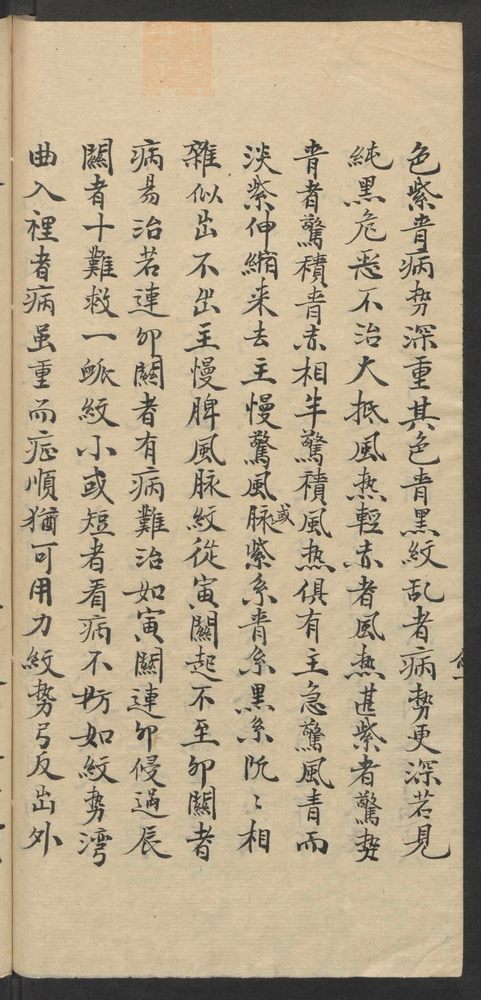 色紫青病势深重其色青黑紋乱者病势更深若見
純黑危恶不治大抵風热輕赤者風热甚紫者驚势
青者驚積青赤相半驚積風热俱有主急驚風青而
淡紫伸縮来去主慢驚風或脉紫系青系黑系阮〻相
雜似出不出主慢脾風脉紋從寅關起不至卯關者
病易治若連卯關者有病難治如寅關連卯侵過辰
關者十難救一脈紋小或短者看病不妨如紋势湾
曲入裡者病虽重而症順猶可用力紋势弓反出外